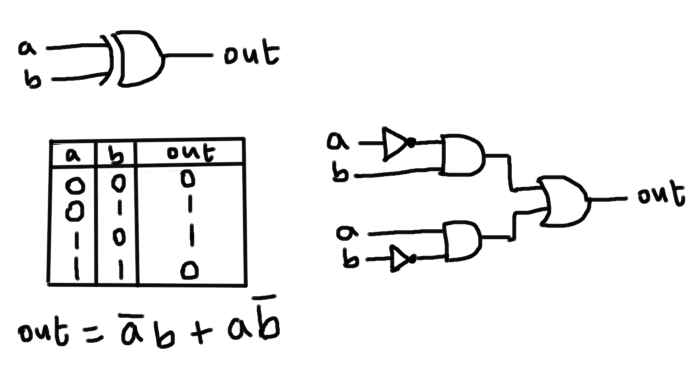 a
b
out
a b out
0 0 0
0 1 1
1 0 1
1 1 0
out = a̅ b + a b̅
a
b
a
b
out